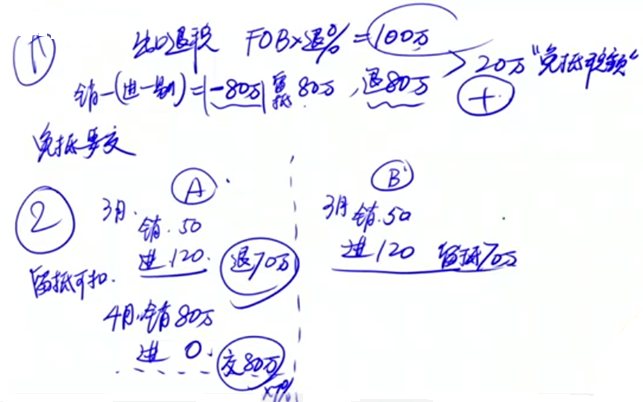 ① 出口退税 FOB×退% = 100万
销-(进-剔) = |-80万| 留抵 80万, 退80万 > 20万 "免抵税额"
+
免抵要交
②
留抵可扣.
A
3月. 销. 50
进. 120. 退70万
4月. 销 80万
进 0. 交80万
×7%
B
3月 销. 50
进 120 留抵70万